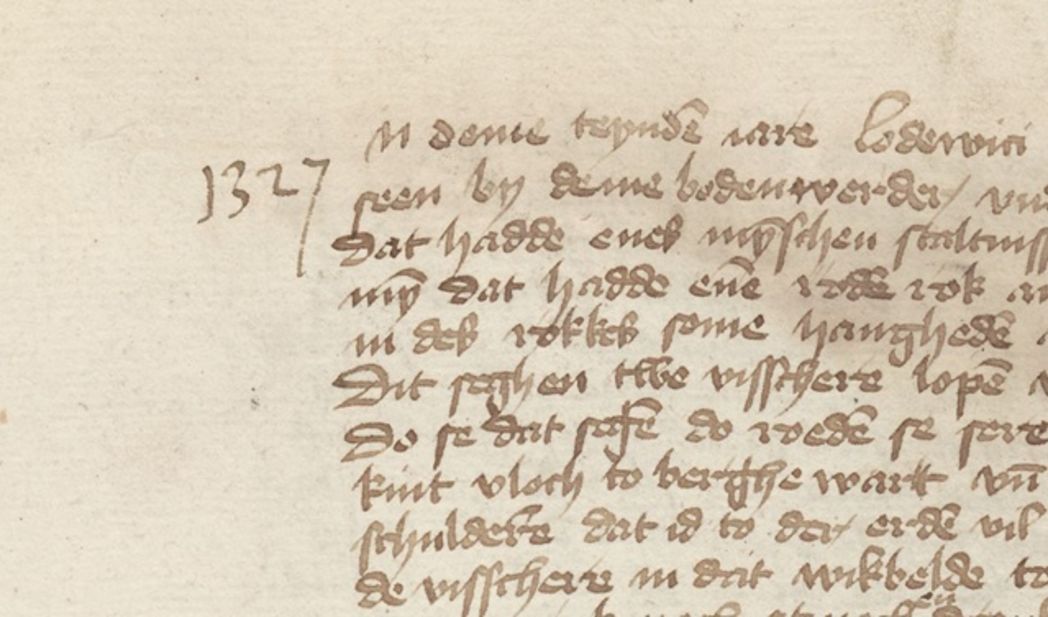 1327
n deme teyndē iare Loderwici
seen by deme bodenwerder vn
dat hadde enes mȳschen staltniss
mȳ dat hadde enē rodē rok an
in des rokkes some hangheden
Dit seghen twe visschere lopē
Do se dat seghē do roedē se sere
kint vloch to berghe wart vn̄
schulderē dat id to der erdē vil
de visschere in dat wikbelde to